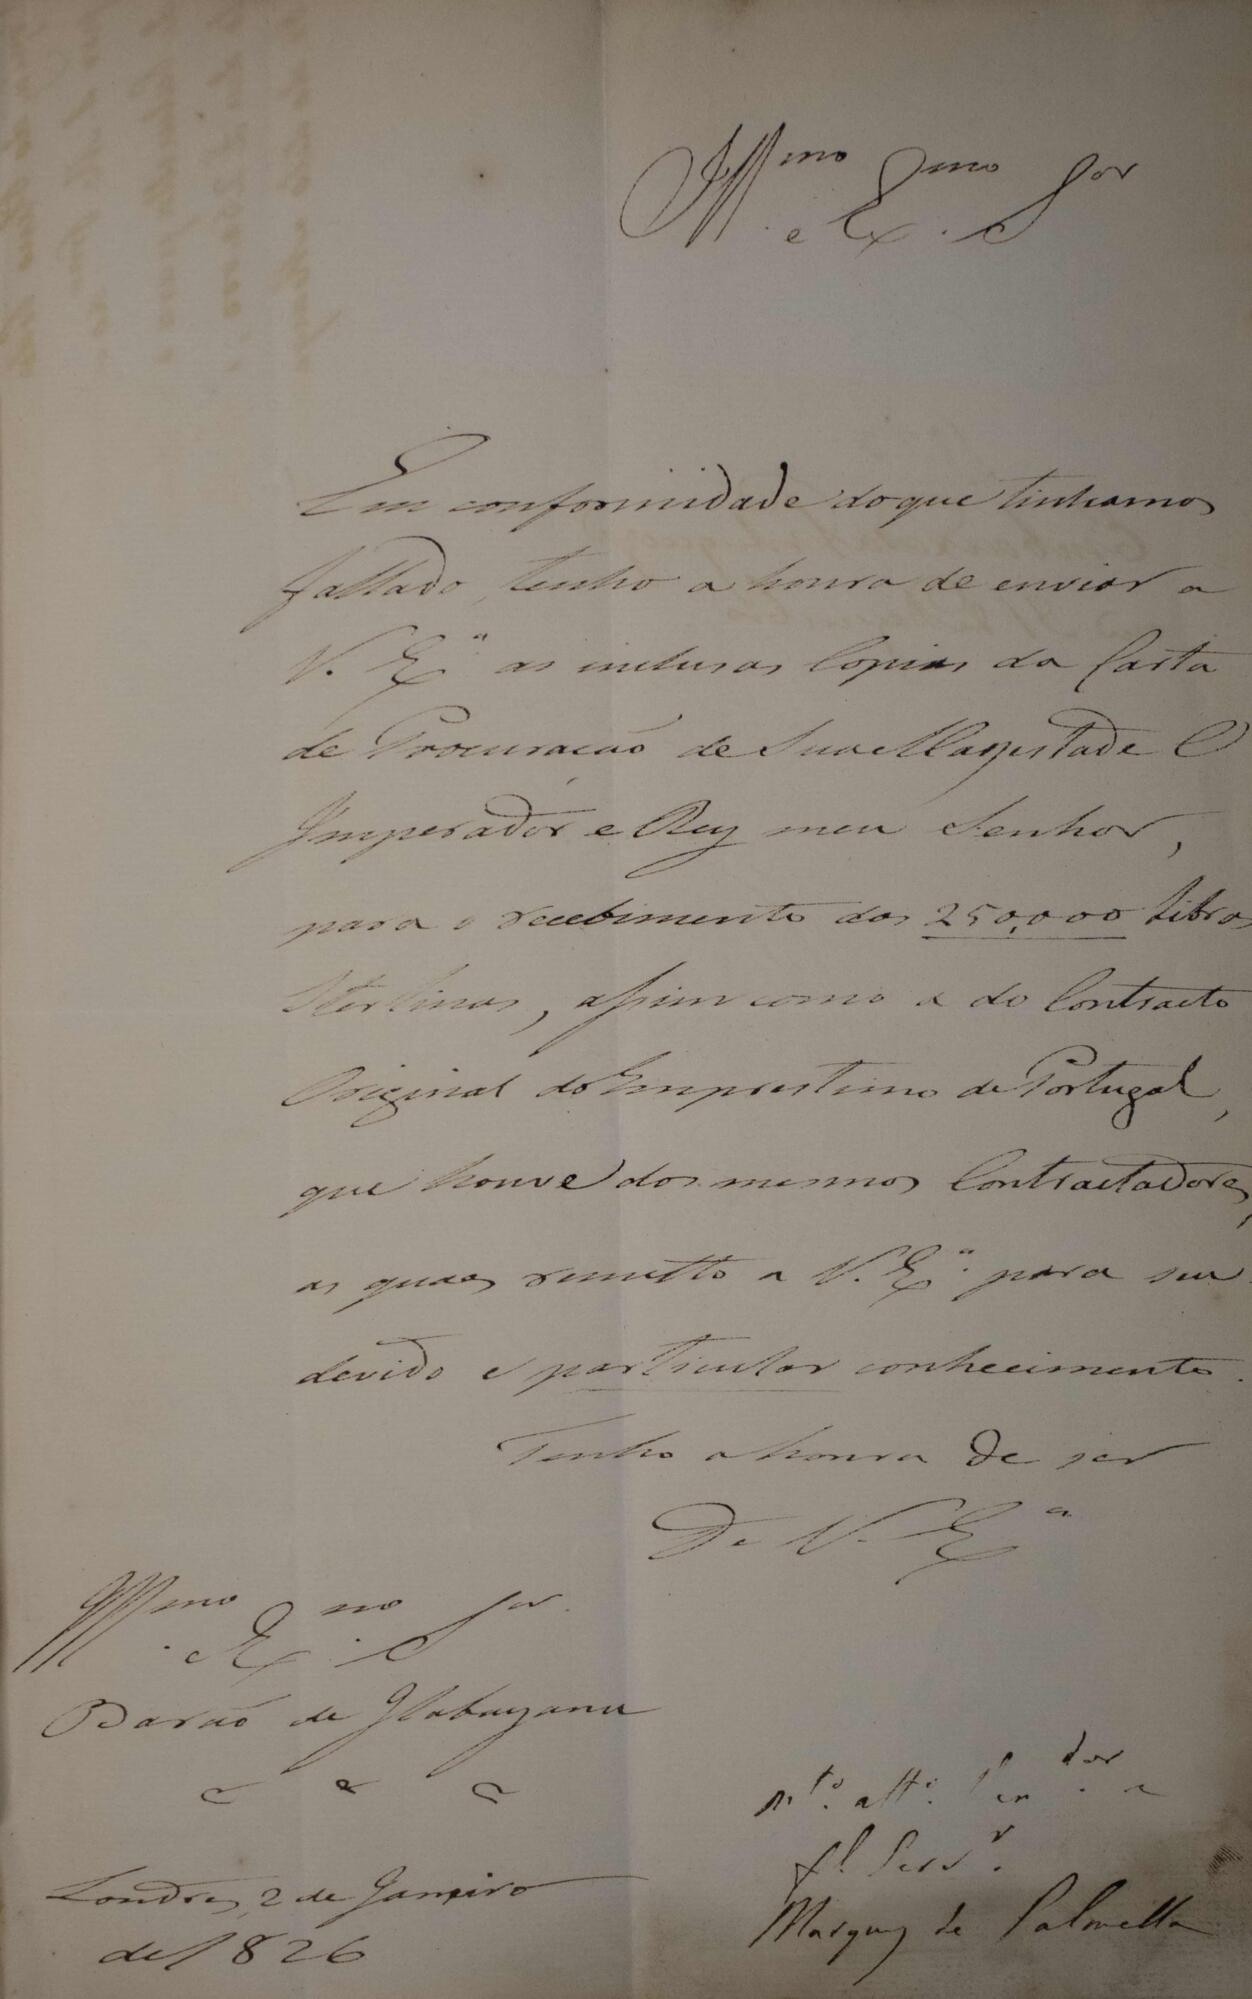 Ill.mo e Ex.mo Sor
Em conformidade do que tinhamos
fallado, tenho a honra de enviar a
V. Ex.a as inclusas Copias da Carta
de Procuração de Sua Magestade O
Imperador e Rey meu Senhor,
para o recebimento das 250,000 Libras
Sterlinas, assim como a do Contracto
Original do Emprestimo de Portugal,
que houve dos mesmos Contractadores,
as quaes remetto a V. Ex.a para seu
devido e particular conhecimento.
Tenho a honra de ser
De V. Ex.a
Ill.mo e Ex.mo Sor
Barão de Itabayana
m.to att.o Ven.dor e
f.l Serv.r
Marquez de Palmella
Londres, 2 de Janeiro
de 1826